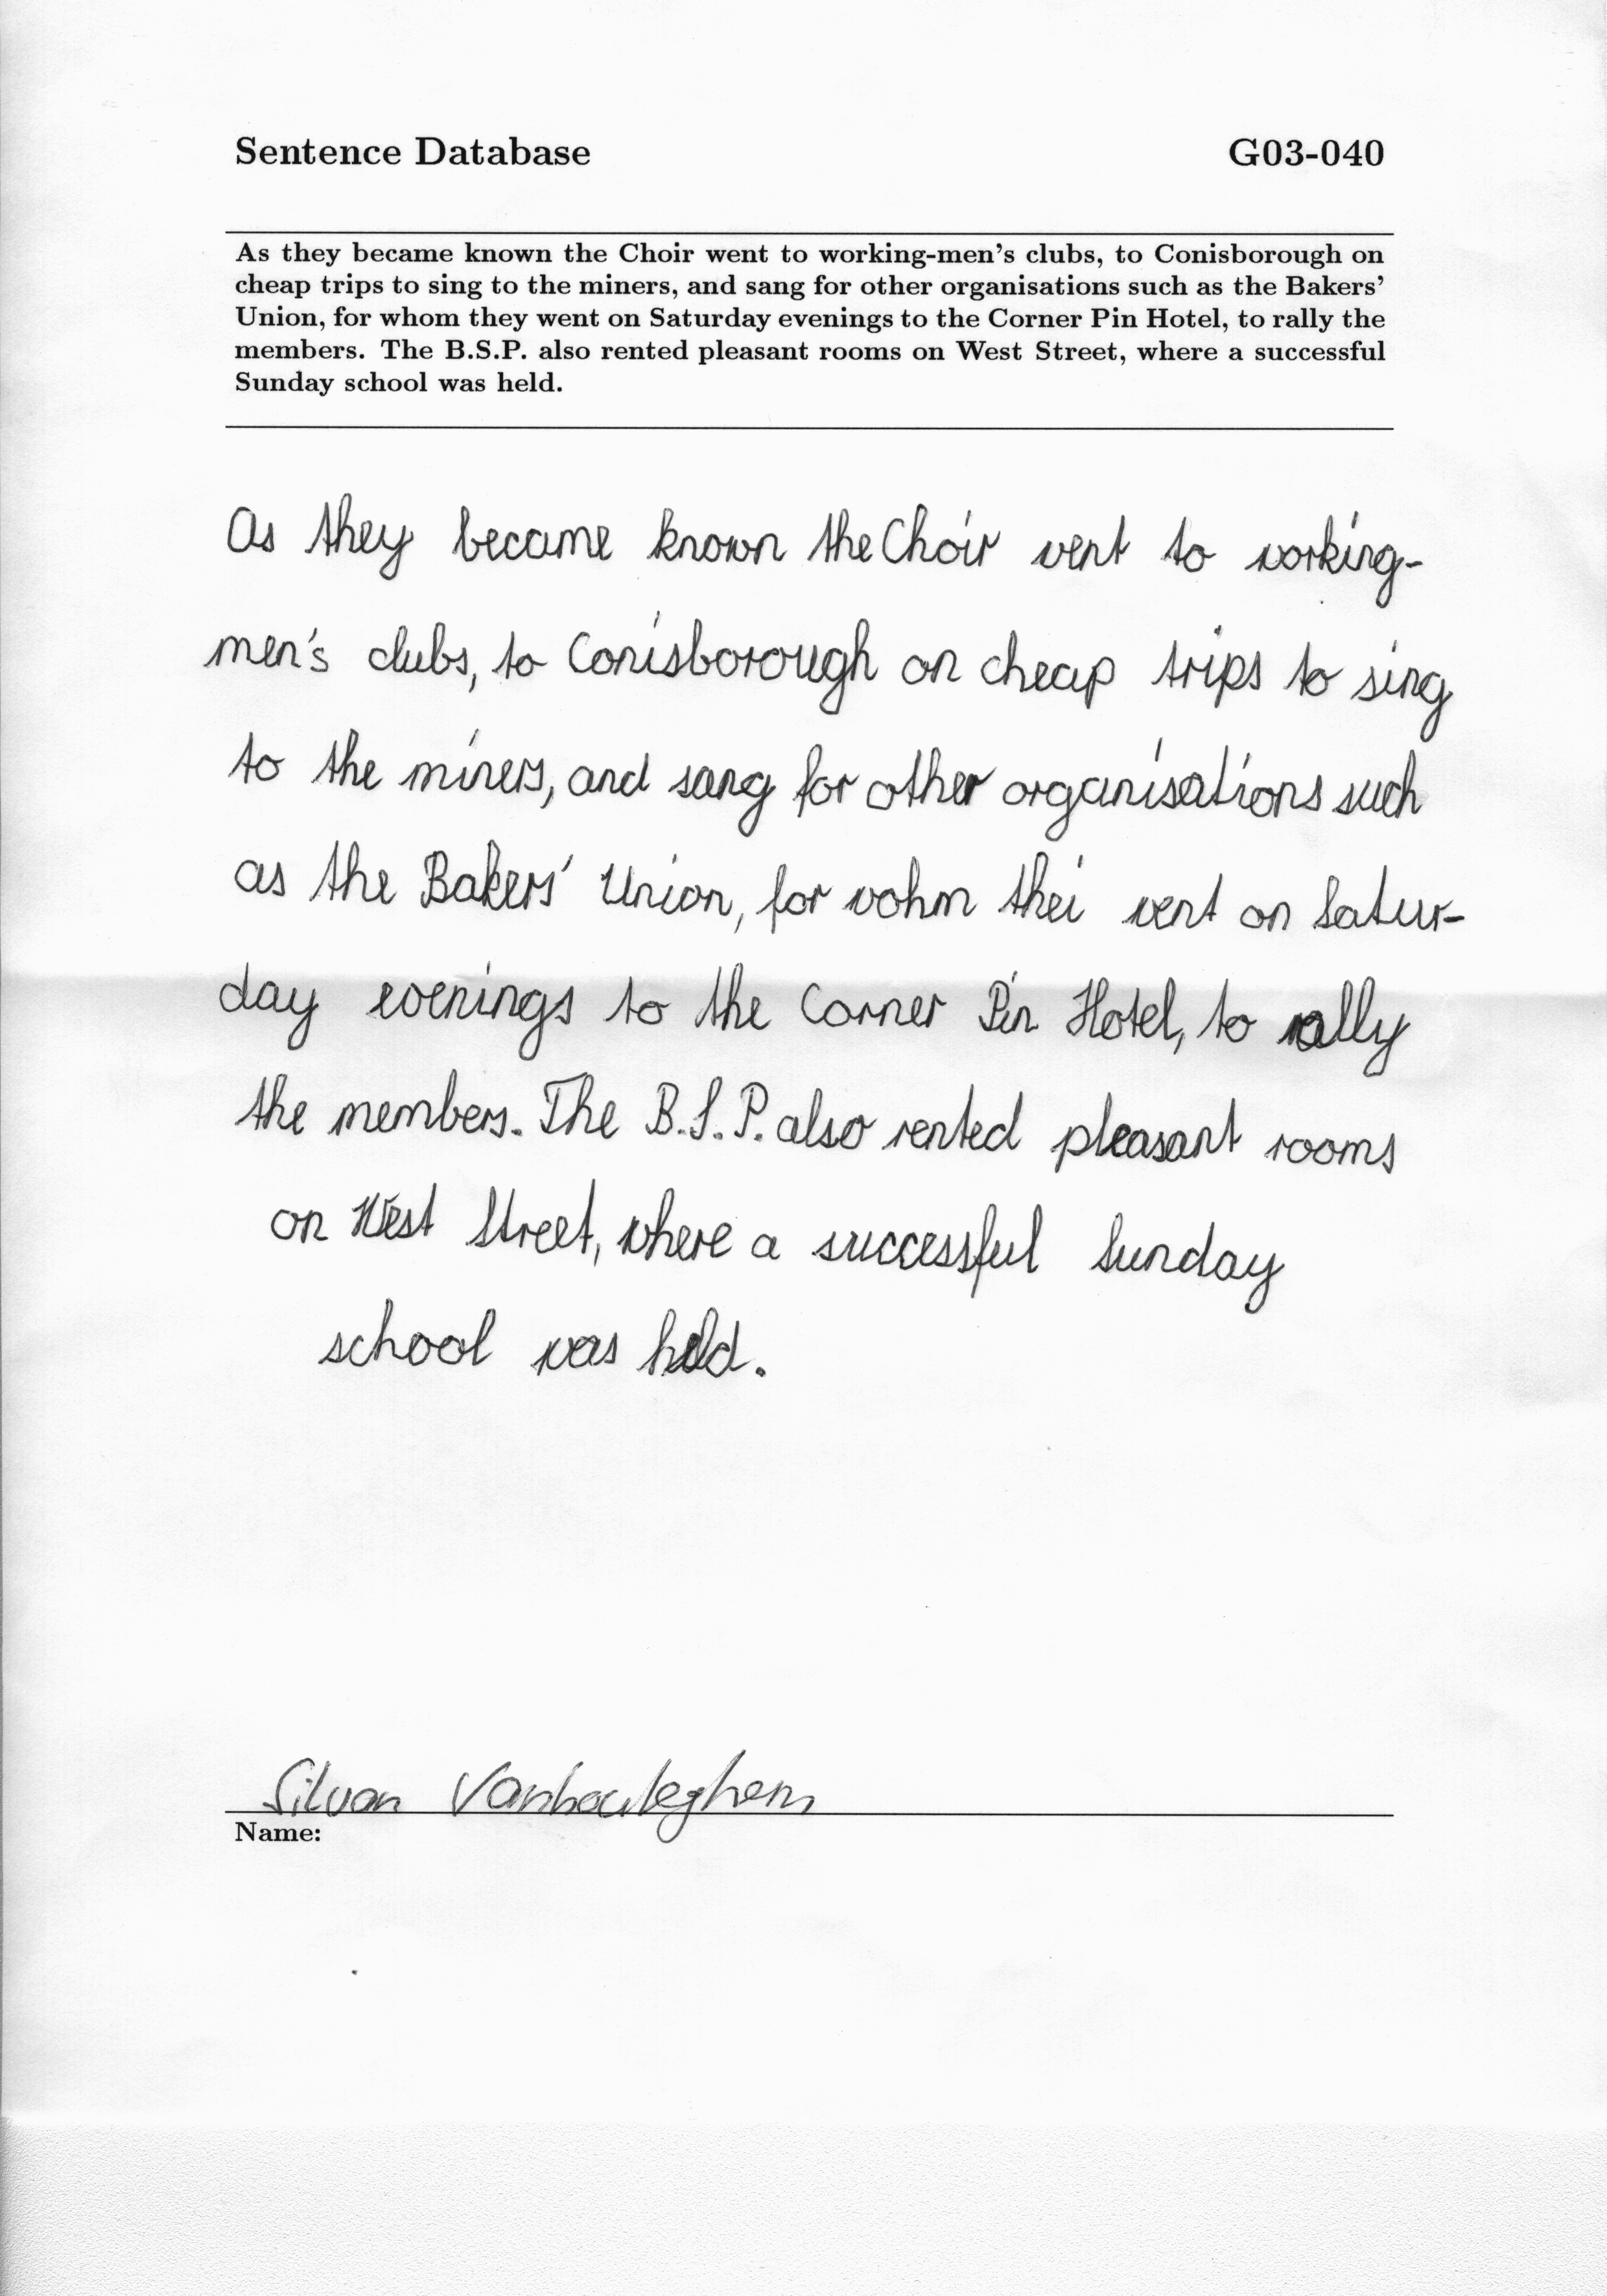 Sentence Database G03-040
As they became known the Choir went to working-men's clubs, to Conisborough on
cheap trips to sing to the miners, and sang for other organisations such as the Bakers'
Union, for whom they went on Saturday evenings to the Corner Pin Hotel, to rally the
members. The B.S.P. also rented pleasant rooms on West Street, where a successful
Sunday school was held.
As they became known the Choir went to working-
men's clubs, to Conisborough on cheap trips to sing
to the miners, and sang for other organisations such
as the Bakers' Union, for wohm thei went on Satur-
day evenings to the Corner Pin Hotel, to rally
the members. The B.S.P. also rented pleasant rooms
on West Street, where a successful Sunday
school was held.
Silvan
Name: